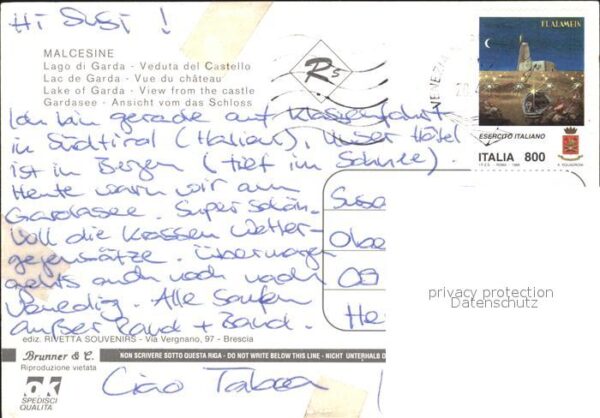 Hi Susi!
MALCESINE
Lago di Garda - Veduta del Castello
Lac de Garda - Vue du château
Lake of Garda - View from the castle
Gardasee - Ansicht vom das Schloss
Rs
EL ALAMEIN
ESERCITO ITALIANO
ITALIA 800
Ich bin gerade auf Klassenfahrt
in Südtirol (Italien), Unser Hotel
ist in Bergen (tief im Schnee).
Heute waren wir am
Gardasee. Super schön.
Voll die krassen Wetter-
gegensätze. Übermorgen
gehts auch noch nach
Venedig. Alle saufen
außer Rand + Band.
Susa
Obe
09
He
privacy protection
Datenschutz
ediz. RIVETTA SOUVENIRS - Via Vergnano, 97 - Brescia
Brunner & C.
NON SCRIVERE SOTTO QUESTA RIGA - DO NOT WRITE BELOW THIS LINE - NICHT UNTERHALB D
Riproduzione vietata
ok
SPEDISCI
QUALITÀ
Ciao